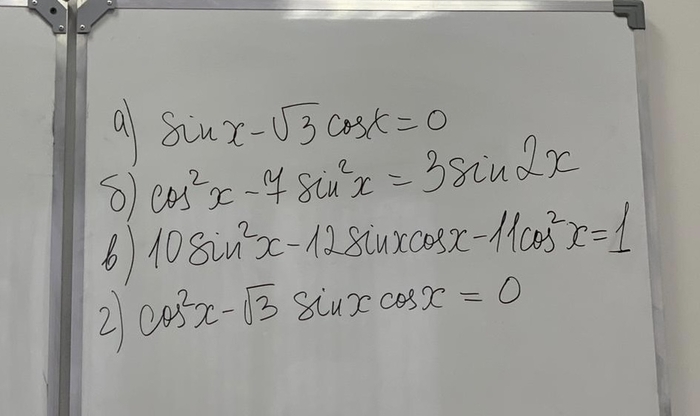 а) sin x - √3 cos x = 0
б) cos²x - 7 sin²x = 3 sin 2x
в) 10 sin²x - 12 sin x cos x - 11 cos²x = 1
г) cos²x - √3 sin x cos x = 0